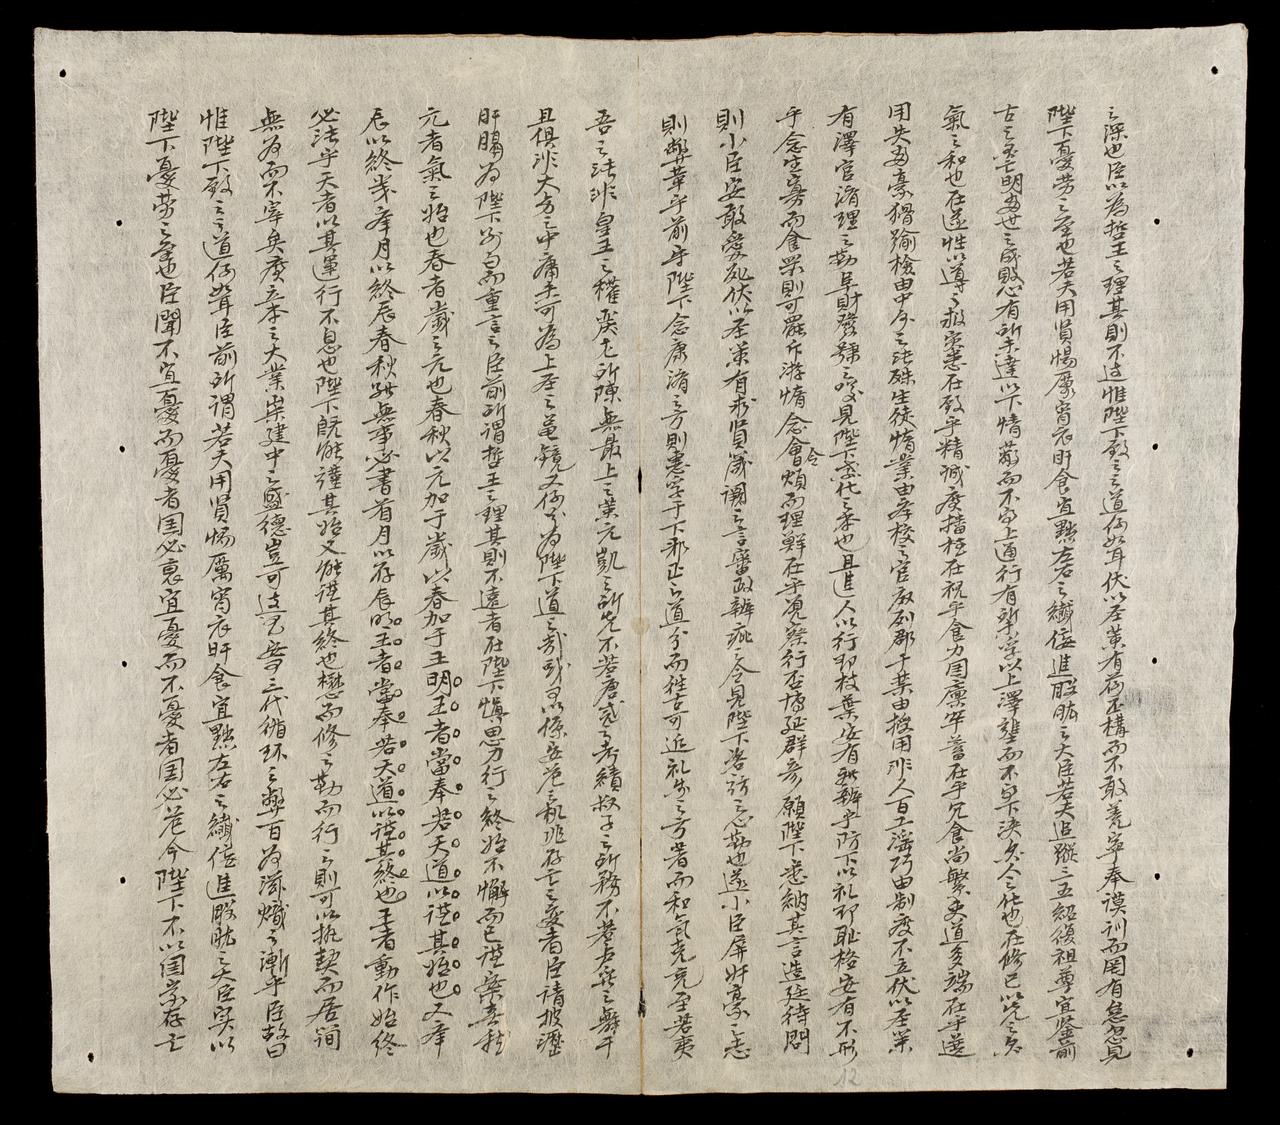 之深也臣以為哲王之理其則不遠惟陛下致之之道何如耳伏以聖策有荷丕構而不敢荒寧奉謨訓而罔有怠忽見
陛下憂勞之至也若夫用賢惕厲宵衣旰食宜黜左右之纖佞進股肱之大臣若夫追蹤三五紹復祖尊宜鑒前
古之興亡明當世之成敗心有所未達以下情蔽而不得上通行有所未孚以上澤壅而不得下浹欲人之化也在修己以先之欲
氣之和也在遂性以導之救灾患在致乎精誠廣播植在視乎食力國廩罕蓄在乎冗食尚繁吏道多端在乎選
用失當豪猾踰檢由中外之法殊生徒惰業由庠校之官廢列郡干禁由授用非人百工淫巧由制度不立伏以聖策
有擇官濟理之勤阜財發號之歎見陛下教化之本也且進人以行則枝葉安有難辨乎防下以礼則恥格安有不形
乎念生寡而食衆則可罷斥游惰念令煩而理鮮在乎覺察行否博延群彦願陛下悉納其言造廷待問
則小臣安敢愛死伏以聖策有求賢箴闕之言審政辨疵之令見陛下咨訪之心勤也遂小臣屏奸豪之志
則弊革乎前守陛下念康濟之方則惠孚于下邪正之道分而往古可近礼樂之方著而和氣克充至若夷
吾之法非皇王之權嚴尤所陳無最上之策元凱之所先不若唐虞之考績叔子之所務不若虞舜之舞干
且俱非大方之中庸未可為上圣之龜鏡又何足為陛下道之哉或有以係安危之机兆存亡之变者臣請披瀝
肝膈為陛下別白而重言之臣前所謂哲王之理其則不遠者在陛下慎思力行之終始不懈而已謹案春秋
元者氣之始也春者歲之元也春秋以元加于歲以春加于王明王者當奉若天道以謹其始也又舉
辰以終歲舉月以終辰春秋雖無事必書首月以存辰明王者當奉若天道以謹其終也王者動作始終
必法乎天者以其運行不息也陛下既能謹其始又能謹其終也懋而修之勤而行之則可以执契而居簡
無為而不宰矣廣立本之大業崇建中之盛德豈可邊又安三代循环之弊百为滋熾之漸乎臣故曰
惟陛下致之之道何如耳臣前所謂若夫用賢惕厲宵衣旰食宜黜左右之纖佞進股肱之大臣实以
陛下憂勞之至也臣聞不宜憂而憂者国必衰宜憂而不憂者国必危今陛下不以国家存亡